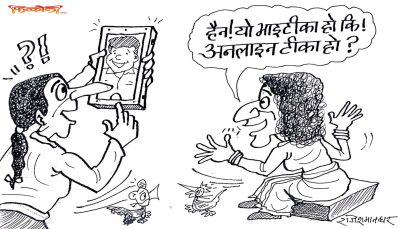 ?!
हैन! यो भाइटीका हो कि!
अनलाइन टीका हो ?
राजेशमानन्धर